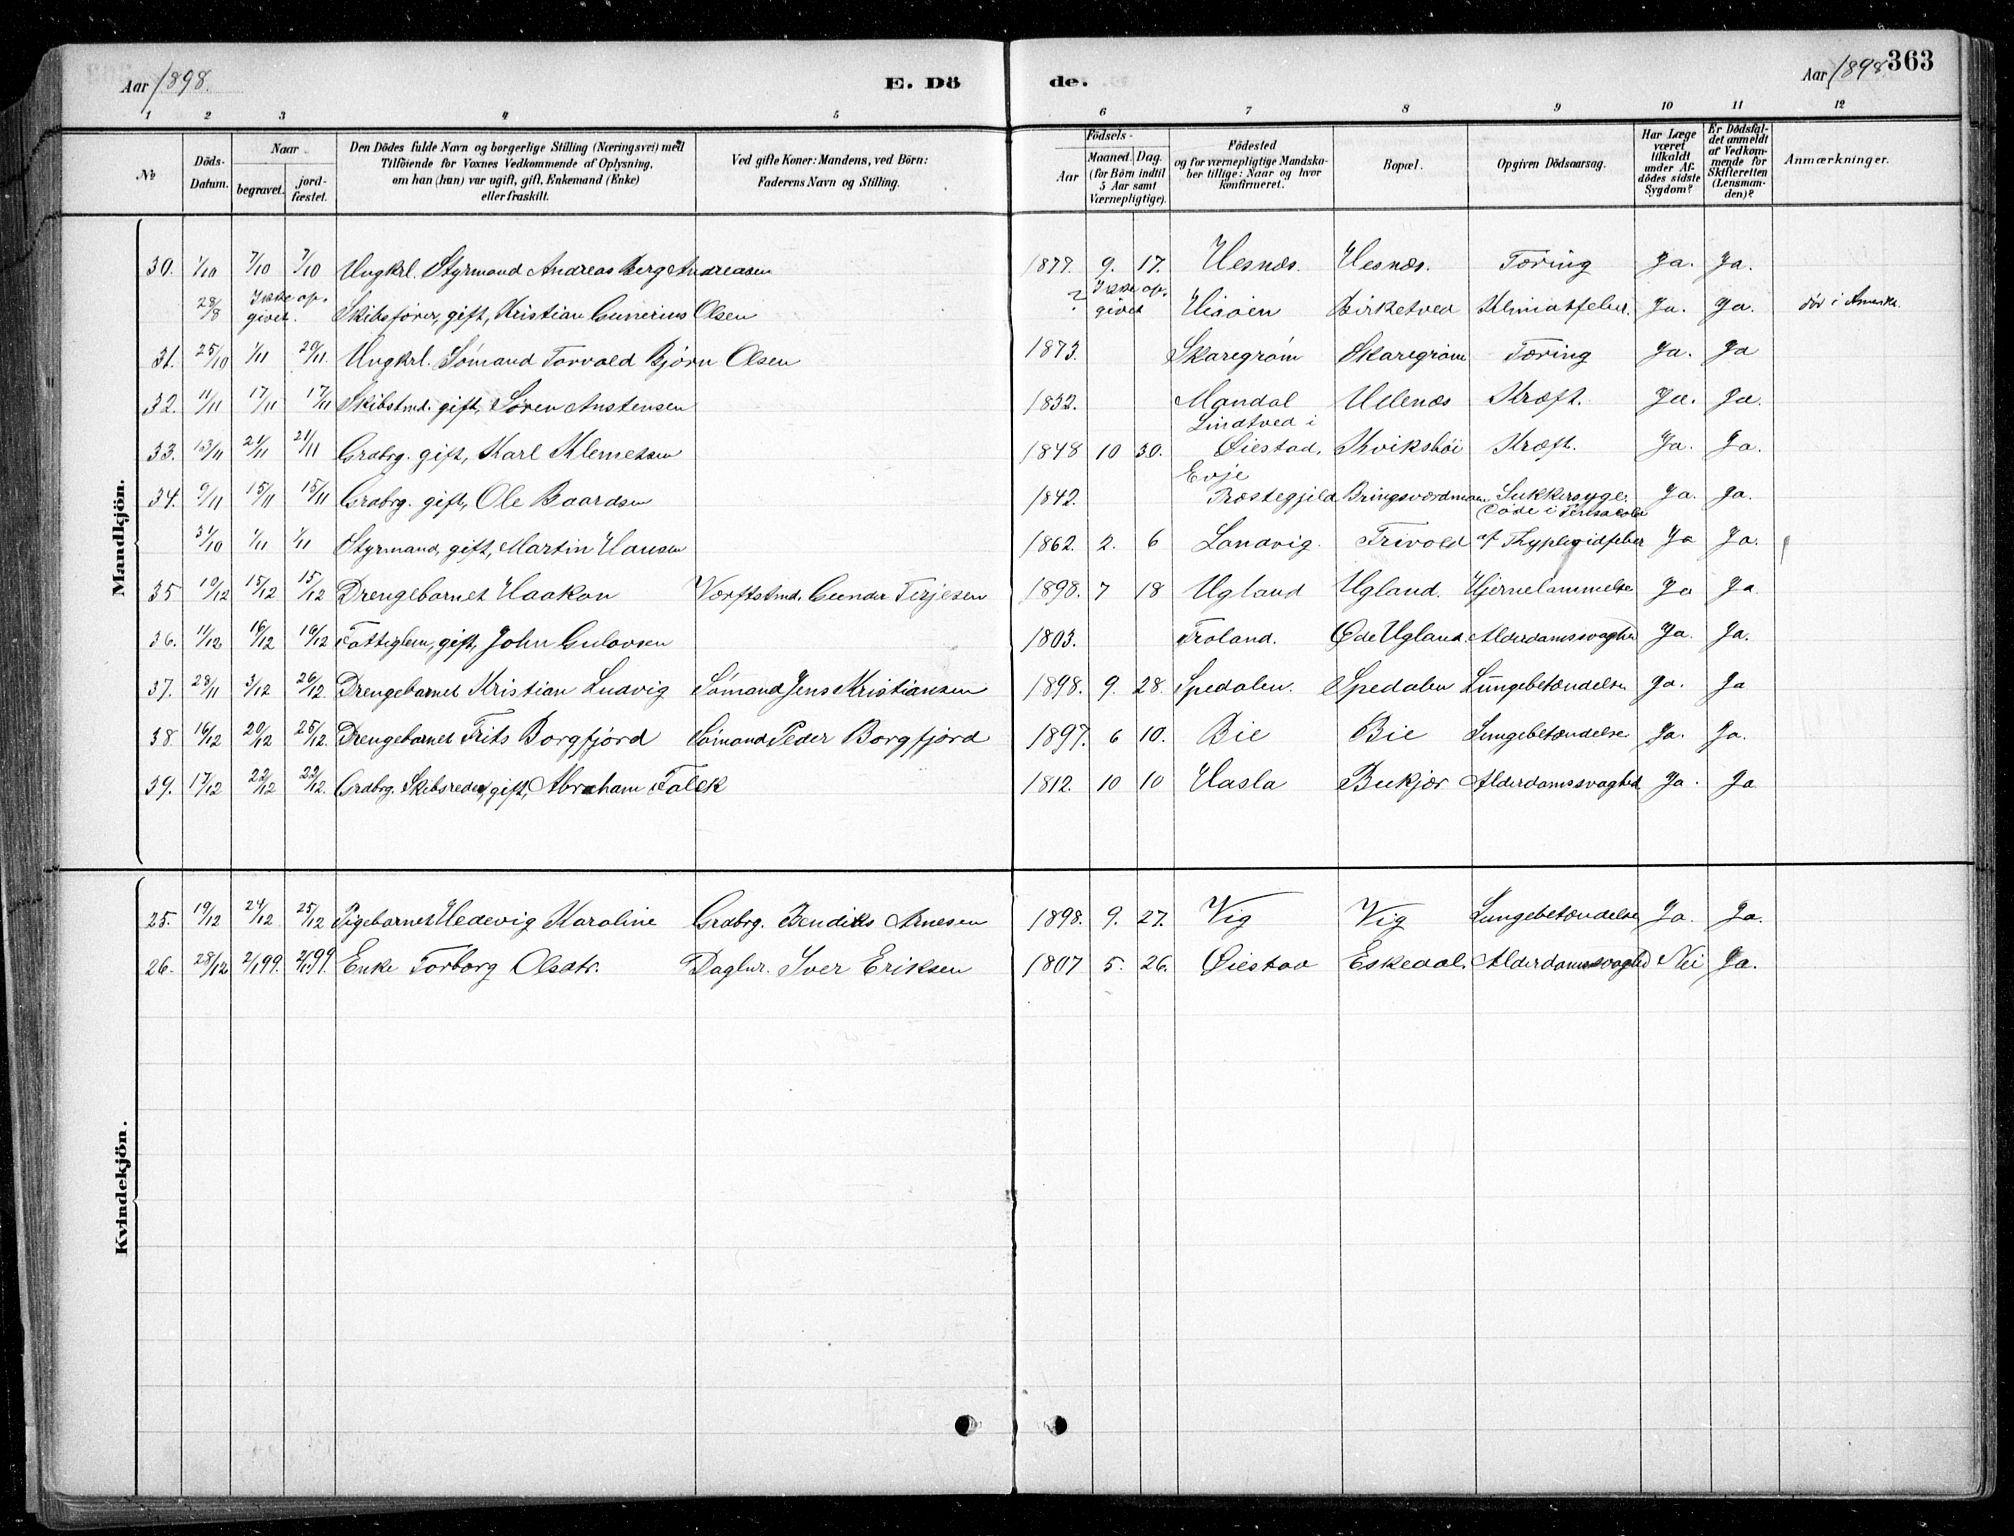 Aar 1898.
E. Dö
de.
Aar 1898. 363
1 2 3 4 5 6 7 8 9 10 11 12
No
Döds-Datum.
Naar
begravet.
jord-fæstet.
Den Dödes fulde Navn og borgerlige Stilling (Næringsvei) med
Tilföiende for Voxnes Vedkommende af Oplysning,
om han (hun) var ugift, gift, Enkemand (Enke)
eller fraskilt.
Ved gifte Koner: Mandens, ved Börn:
Faderens Navn og Stilling.
Födsels-
Aar
Maaned. Dag.
(for Börn indtil
5 Aar samt
Værnepligtige).
Födested
og for værnepligtige Mandska-
ber tillige: Naar og hvor
konfirmeret.
Bopæl.
Opgiven Dödsaarsag.
Har Læge
været
tilkaldt
under Af-
dödes sidste
Sygdom?
Er Dödsfal-
det anmeldt
af Vedkom-
mende for
Skifteretten
(Lensman-
den)?
Anmærkninger.
Mandkjön.
30. 1/10 7/10 7/10 Ungkrl. Styrmand Andreas Berg Andreasen 1877. 9. 17. Hesnæs. Hesnæs. Tæring Ja. Ja.
28/8 Ikke op-givet. Skibsfører, gift, Kristian Gunerius Olsen ? Ikke op-givet Hisøen Birketved Klimatfeber. Ja. Ja. død i Amerika.
31. 25/10 1/11 20/11. Ungkrl. Sømand Torvald Bjørn Olsen 1873. Skaregrøm Skaregrøm Tæring Ja. Ja
32. 11/11 17/11 17/11 Skibstmd. gift, Søren Anstensen 1832. Mandal Ulenæs Kræft. Ja. Ja.
33. 13/11 21/11 21/11 Grdbrg. gift, Karl Klemetsen 1848 10 30. Lindtved i Øiestad, Kvikshöi Kræft. Ja. Ja.
34. 9/11 15/11 15/11 Grdbrg. gift, Ole Baardsen 1842. Evje Præstegjeld Bringsværdmoen Sukkersyge. Ja. Ja.
31/10 1/11 1/11 Styrmand, gift, Martin Hansen 1862. 2. 6 Landvig. Trivold Døde i Pensacola af Thyphoidfeber Ja Ja.
35 10/12 15/12 15/12 Drengebarnet Haakon Værftstmd. Gunder Terjesen 1898. 7 18 Ugland Ugland. Hjernelammelse Ja Ja
36. 11/12 16/12 16/12 Fattiglem, gift, John Gulovsen 1803. Froland. Øde Ugland. Alderdomssvaghed Ja. Ja.
37. 28/11 3/12 26/12. Drengebarnet Kristian Ludvig Sømand Jens Kristiansen 1898. 9. 28. Spedalen. Spedalen Lungebetændelse Ja. Ja
38 16/12 20/12 25/12. Drengebarnet Frits Borgfjord Sømand Peder Borgfjord 1897. 6 10. Bie Bie Lungebetændelse Ja. Ja.
39. 17/12 22/12 22/12. Grdbrg. Skibsreder, gift, Abraham Falck 1812. 10 10 Hasla Bukjær Alderdomssvaghed Ja. Ja
Kvindekjön.
25. 19/12 24/12 25/12 Pigebarnet Hedevig Karoline Grdbrg. Bendiks Arnesen 1898. 9. 27. Vig Vig Lungebetændelse Ja. Ja.
26. 28/12 2/1 99. 2/1 99. Enke Torborg Olsdtr. Daglnr. Iver Eriksen 1807 5. 26. Øiestad Eskedal. Alderdomssvaghed Nei Ja.